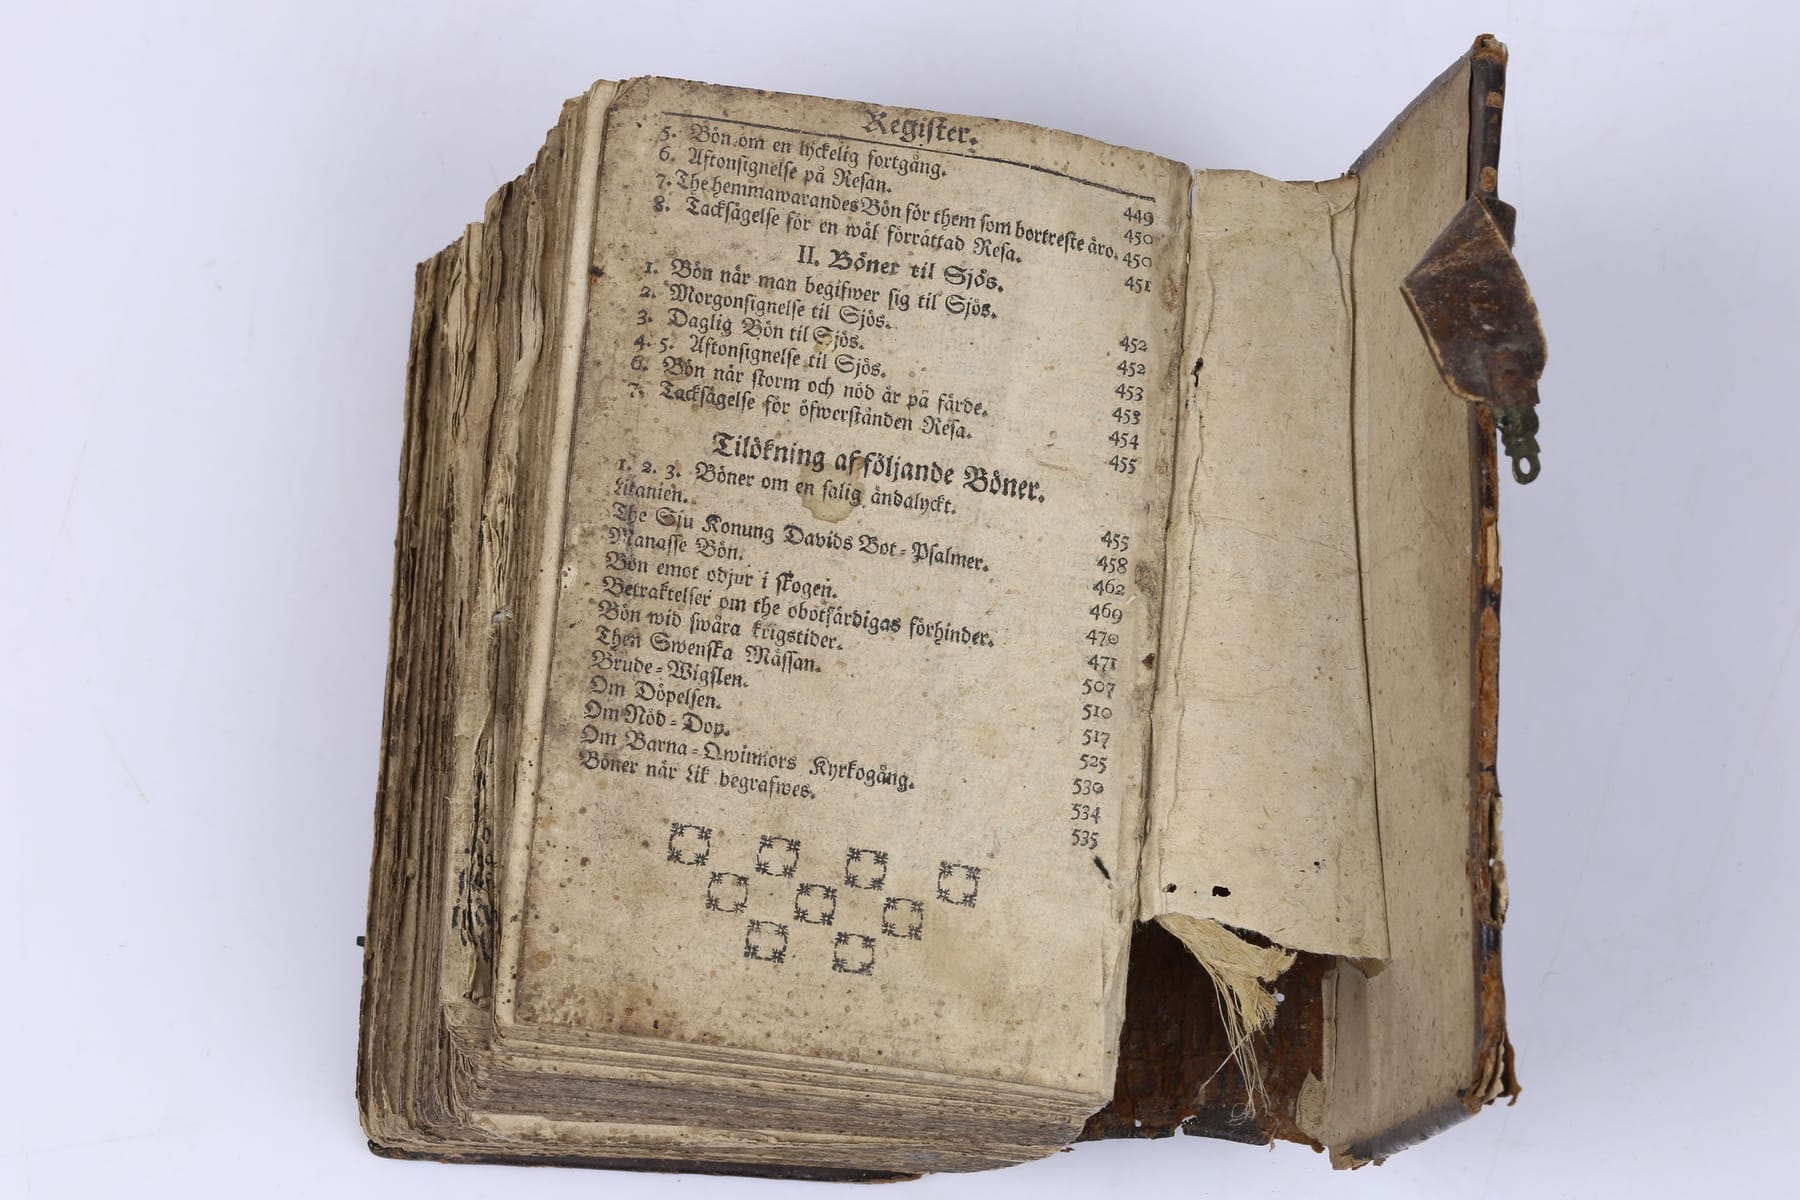 Register.
5. Bön om en lyckelig fortgång. 449
6. Aftonsignelse på Resan. 450
7. The hemmawarandes Bön för them som bortreste äro. 450
8. Tacksägelse för en wäl förrättad Resa. 451
II. Böner til Sjös.
1. Bön når man begifwer sig til Sjös. 452
2. Morgonsignelse til Sjös. 452
3. Daglig Bön til Sjös. 453
4. 5. Aftonsignelse til Sjös. 453
6. Bön når storm och nöd är på färde. 454
7. Tacksägelse för öfwerstånden Resa. 455
Tilökning af följande Böner.
1. 2. 3. Böner om en salig ändalyckt. 455
Litanien. 458
The Sju Konung Davids Bot-Psalmer. 462
Manasse Bön. 469
Bön emot odjur i skogen. 470
Betraktelser om the obotfärdigas förhinder. 471
Bön wid swåra krigstider. 507
Then Swenska Mässan. 510
Brude-Wigslen. 517
Om Döpelsen. 525
Om Nöd-Dop. 530
Om Barna-Qwinnors Kyrkogång. 534
Böner når Lik begrafwes. 535